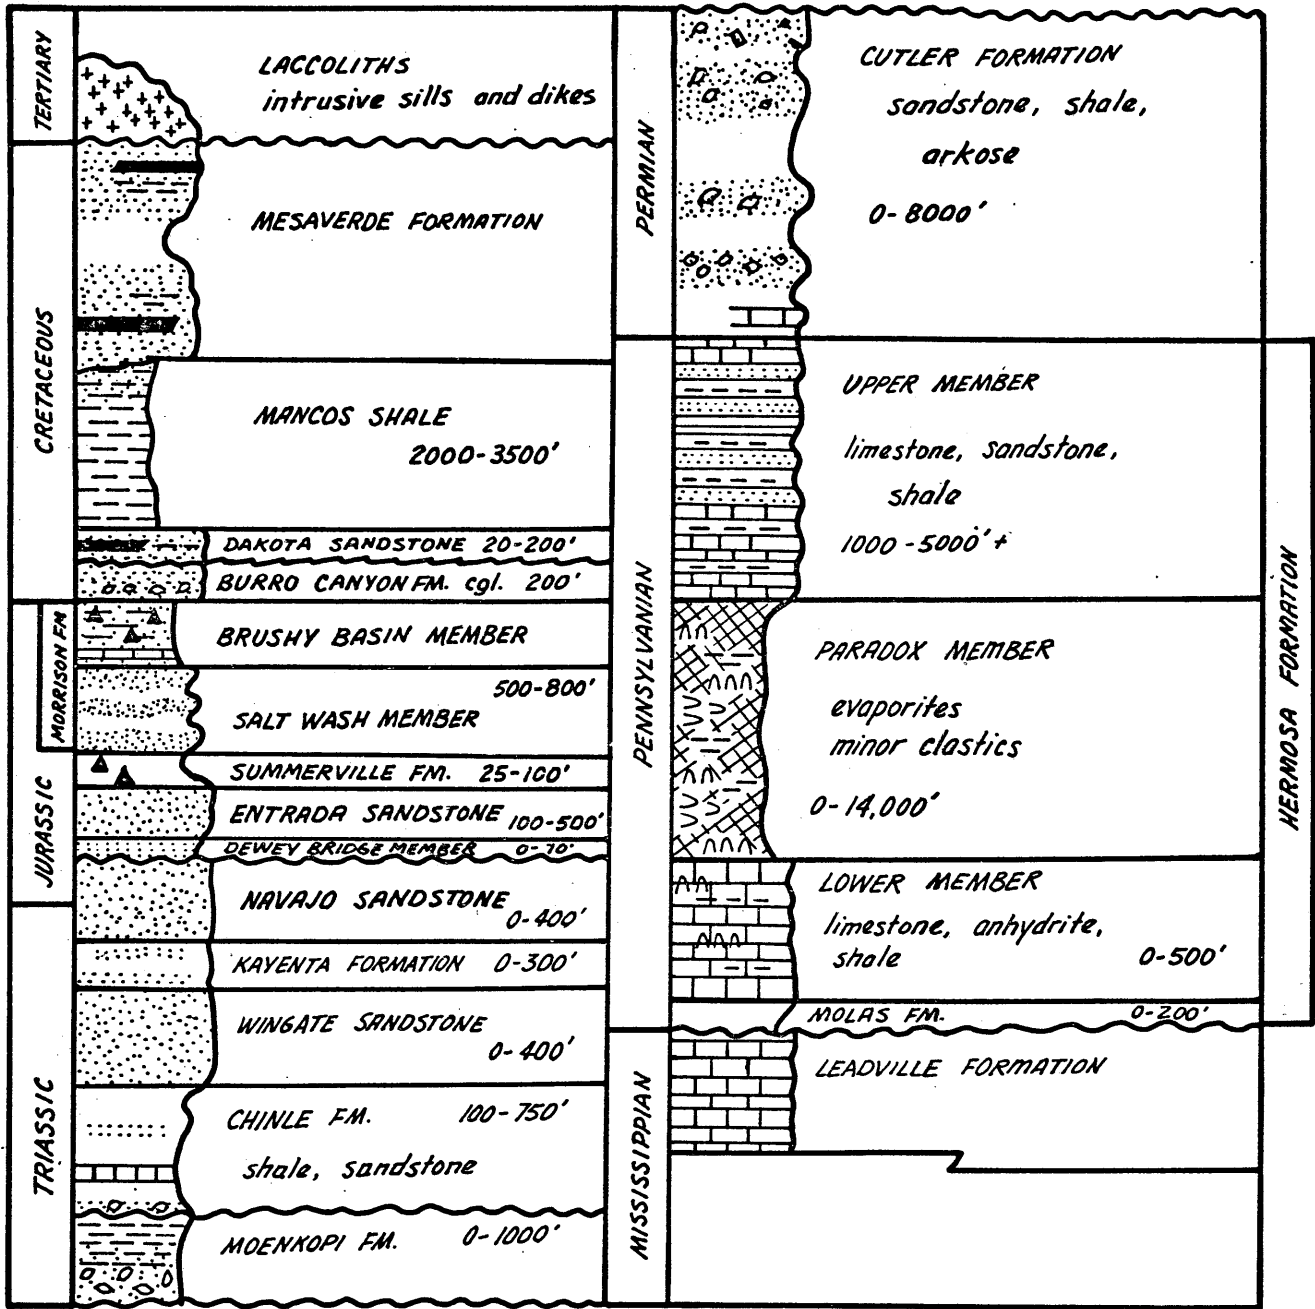 TERTIARY
LACCOLITHS
intrusive sills and dikes
CRETACEOUS
MESAVERDE FORMATION
MANCOS SHALE
2000-3500'
DAKOTA SANDSTONE 20-200'
BURRO CANYON FM. cgl. 200'
JURASSIC
MORRISON FM
BRUSHY BASIN MEMBER
500-800'
SALT WASH MEMBER
SUMMERVILLE FM. 25-100'
ENTRADA SANDSTONE 100-500'
DEWEY BRIDGE MEMBER 0-70'
NAVAJO SANDSTONE
0-400'
TRIASSIC
KAYENTA FORMATION 0-300'
WINGATE SANDSTONE
0-400'
CHINLE FM. 100-750'
shale, sandstone
MOENKOPI FM. 0-1000'
PERMIAN
CUTLER FORMATION
sandstone, shale,
arkose
0-8000'
PENNSYLVANIAN
HERMOSA FORMATION
UPPER MEMBER
limestone, sandstone,
shale
1000-5000'+
PARADOX MEMBER
evaporites
minor clastics
0-14,000'
LOWER MEMBER
limestone, anhydrite,
shale 0-500'
MOLAS FM. 0-200'
MISSISSIPPIAN
LEADVILLE FORMATION